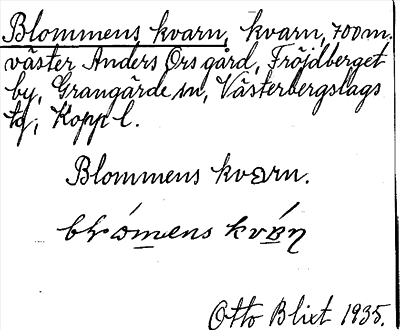 Blommens kvarn, kvarn, 700 m.
väster Anders Ors gård, Fröjdberget
by, Grangärde sn, Västerbergslags
tg; Koppl.
Blommens kvarn.
Otto Blixt 1935.